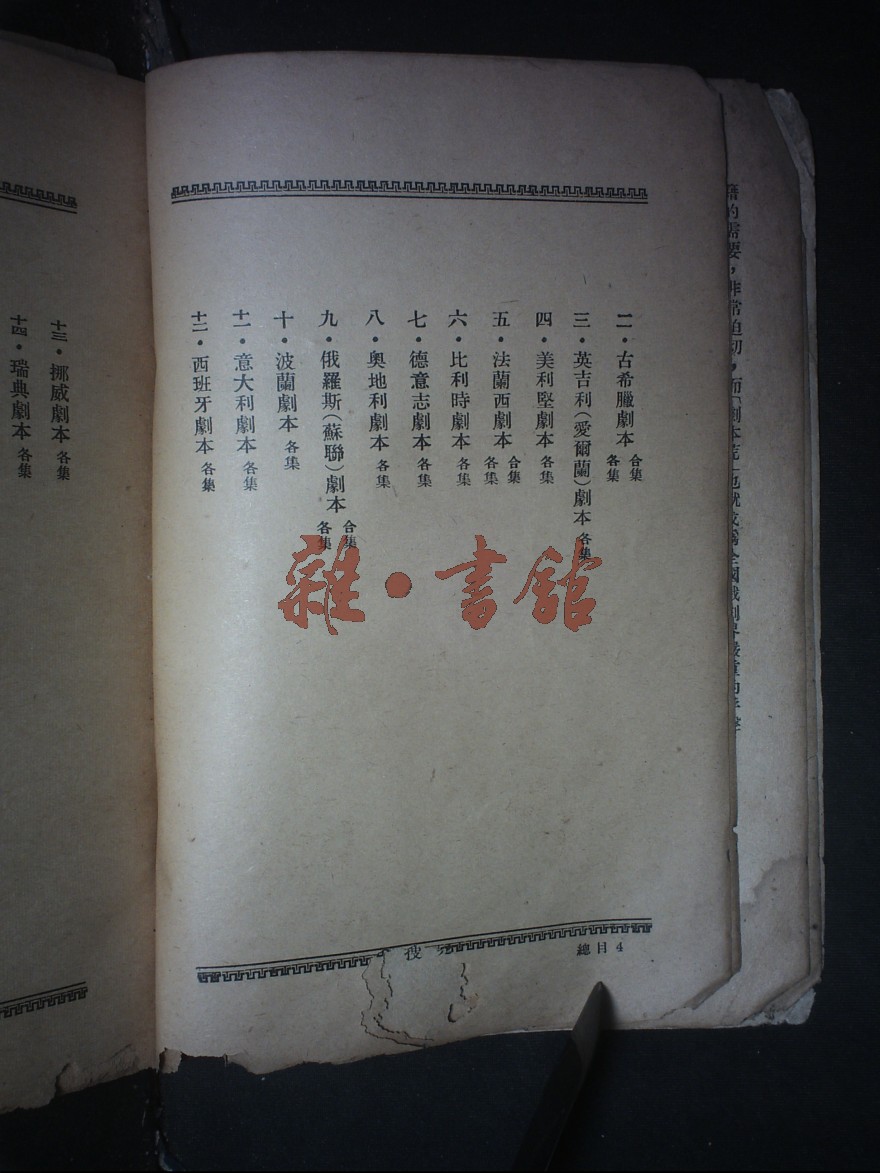 二·古希臘劇本 合集 各集
三·英吉利(愛爾蘭)劇本 各集
四·美利堅劇本 各集
五·法蘭西劇本 合集 各集
六·比利時劇本 各集
七·德意志劇本 各集
八·奧地利劇本 各集
九·俄羅斯(蘇聯)劇本 合集 各集
十·波蘭劇本 各集
十一·意大利劇本 各集
十二·西班牙劇本 各集
總目 4
十三·挪威劇本 各集
十四·瑞典劇本 各集
雜·書館